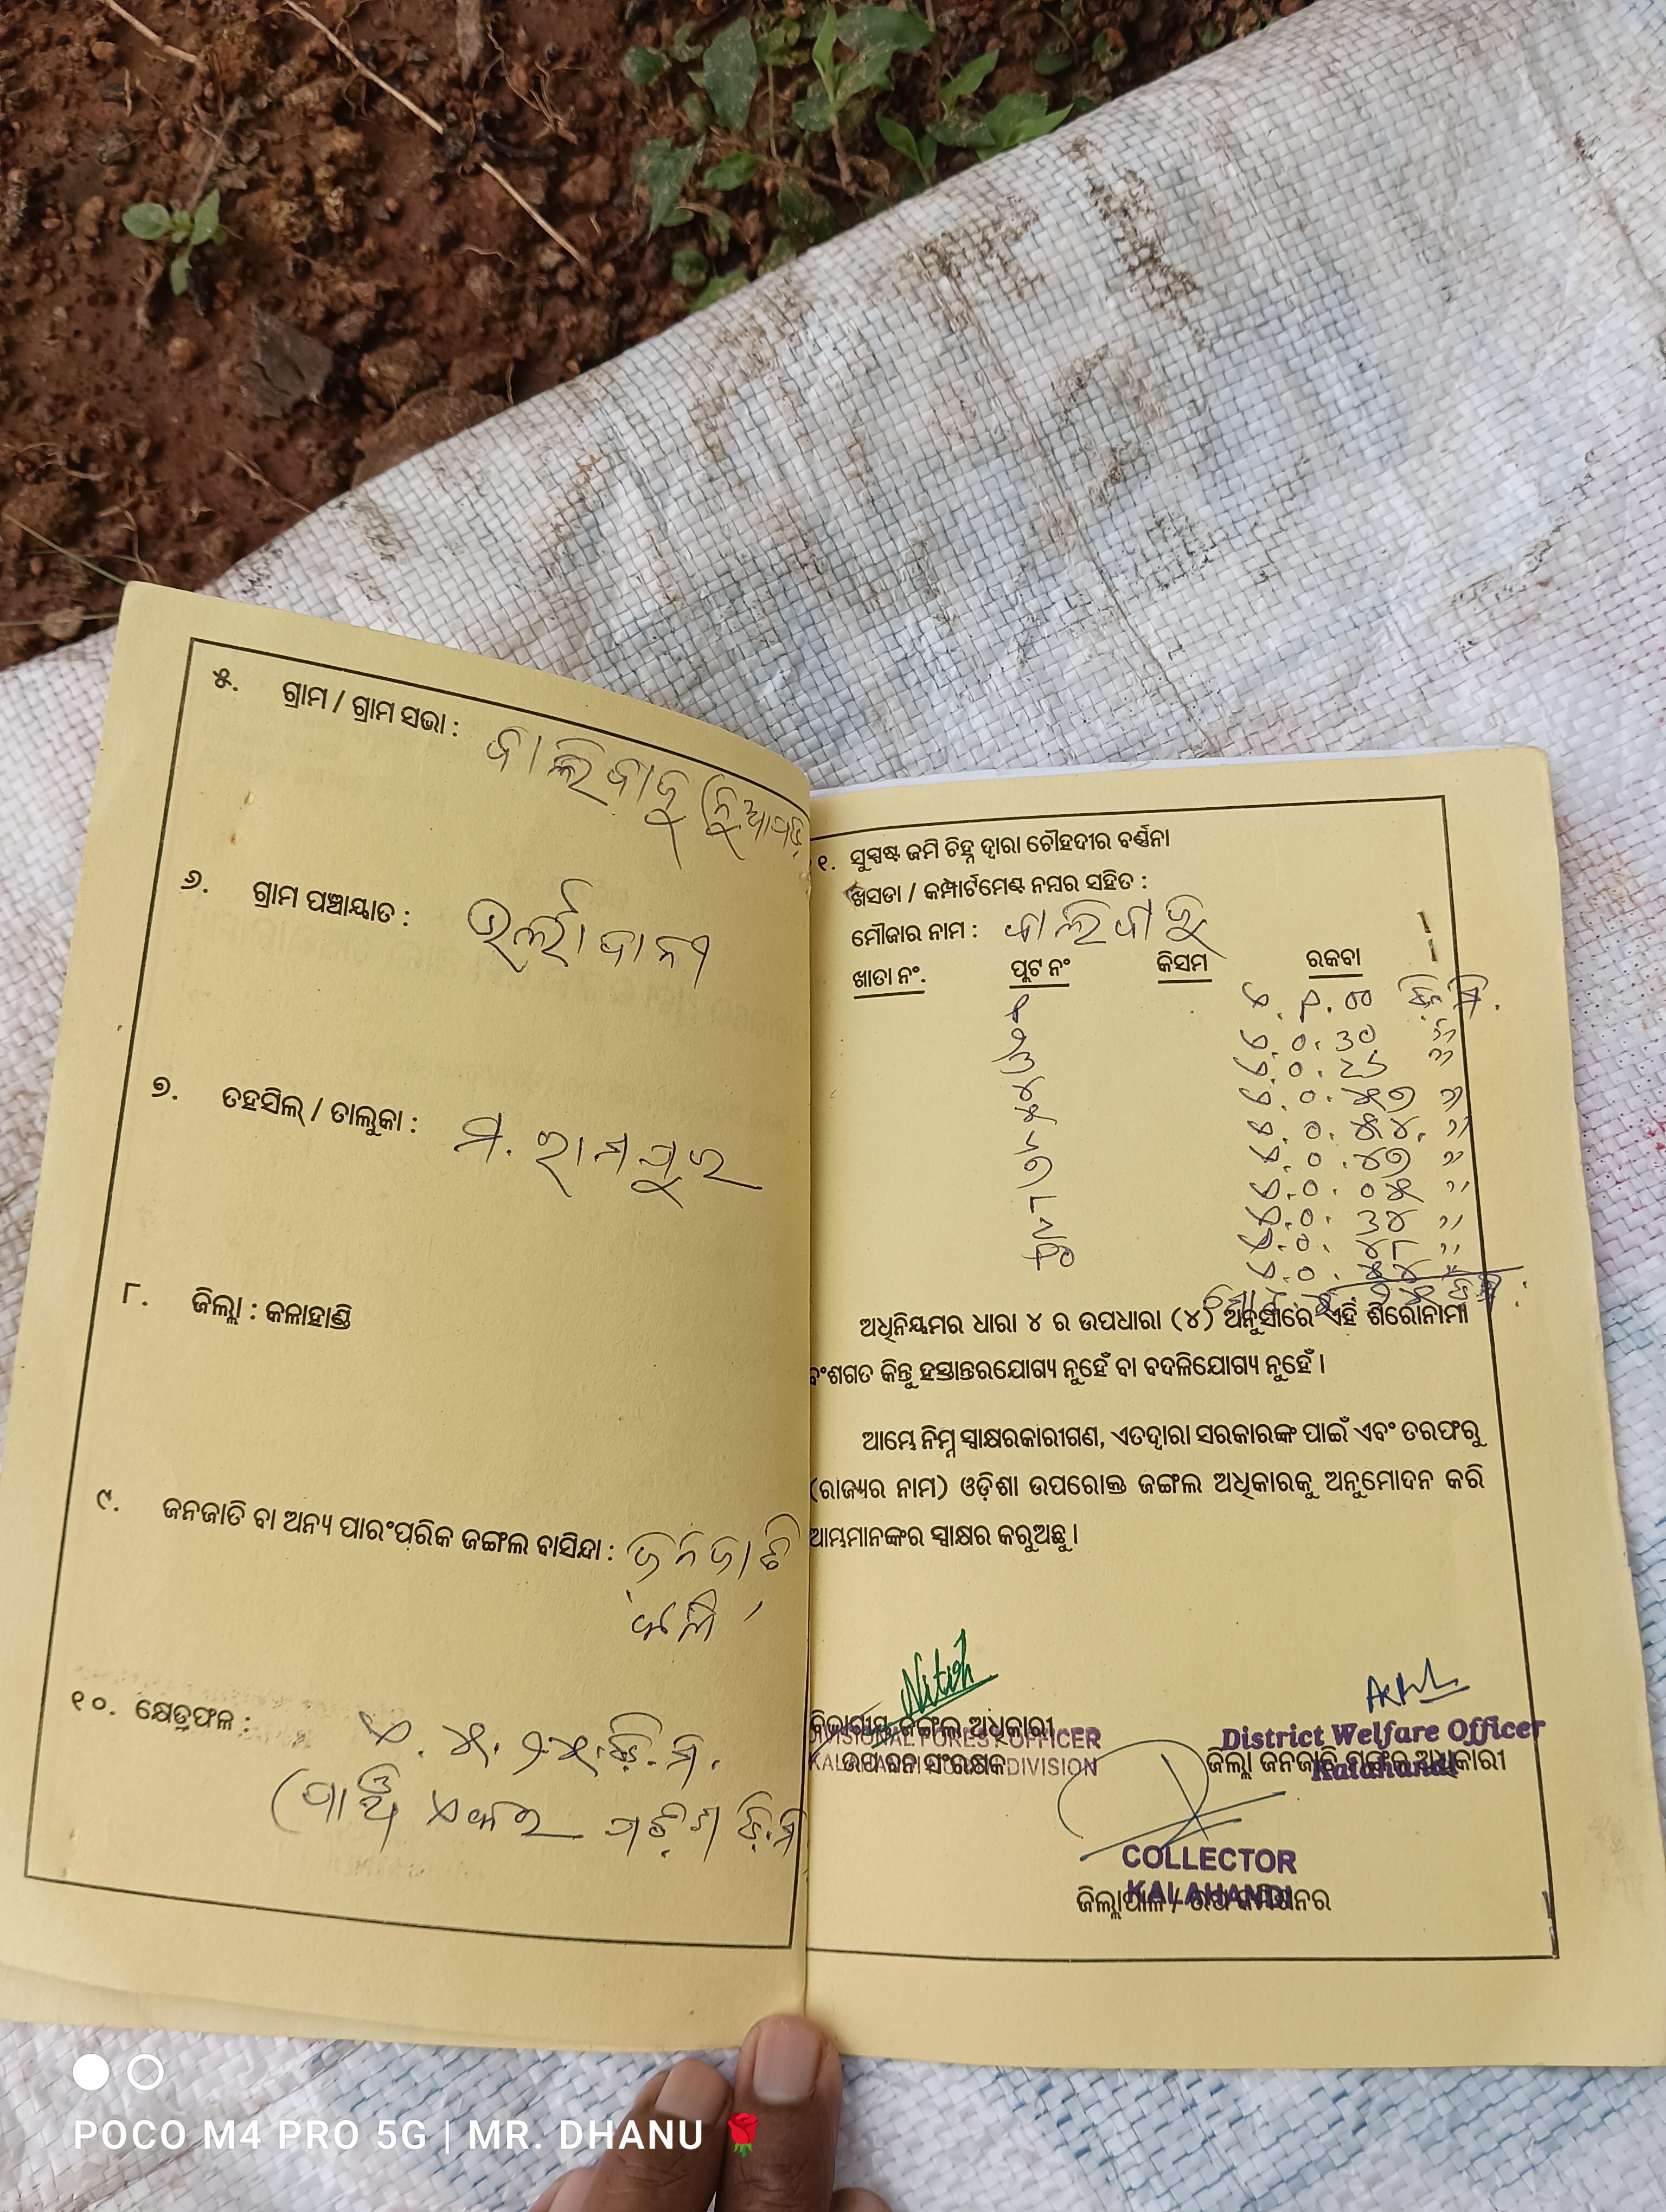 ୫. ଗ୍ରାମ / ଗ୍ରାମ ସଭା : ବାଲିବାଜୁ (ନୁଆଗଡ଼
୬. ଗ୍ରାମ ପଞ୍ଚାୟାତ :
୭. ତହସିଲ୍ / ତାଲୁକା : ମ. ରାମପୁର
୮. ଜିଲ୍ଲା : କଳାହାଣ୍ଡି
୯. ଜନଜାତି ବା ଅନ୍ୟ ପାରଂପରିକ ଜଙ୍ଗଲ ବାସିନ୍ଦା : ଜନଜାତି
୧୦. କ୍ଷେତ୍ରଫଳ : ଏ. ୫. ୨୫ ଡି.ମି.
(ପାଞ୍ଚ ଏକର ପଚିଶ ଡି.ମି
୧. ସୁସ୍ପଷ୍ଟ ଜମି ଚିହ୍ନ ଦ୍ୱାରା ଚୌହଦୀର ବର୍ଣ୍ଣନା
ଖସଡା / କମ୍ପାର୍ଟମେଣ୍ଟ ନମ୍ବର ସହିତ :
ମୌଜାର ନାମ : ବାଲିବାଜୁ
ଖାତା ନଂ. ପ୍ଲଟ ନଂ କିସମ ରକବା
୧ ଏ. ୧. ୦୦ ଡି.ମି.
୨ ଏ. ୦. ୩୦ "
୩ ଏ. ୦. ୨୬ "
୪ ଏ. ୦. ୫୭ "
୫ ଏ. ୦. ୫୪. "
୬ ଏ. ୦. ୪୭ "
୭ ଏ. ୦. ୦୫ "
୮ ଏ. ୦. ୩୪ "
୯ ଏ. ୦. ୪୮ "
୧୦ ଏ. ୦. "
ଅଧିନିୟମର ଧାରା ୪ ର ଉପଧାରା (୪) ଅନୁସାରେ ଏହି ଶିରୋନାମା
ବଂଶଗତ କିନ୍ତୁ ହସ୍ତାନ୍ତରଯୋଗ୍ୟ ନୁହେଁ ବା ବଦଳିଯୋଗ୍ୟ ନୁହେଁ ।
ଆମ୍ଭେ ନିମ୍ନ ସ୍ୱାକ୍ଷରକାରୀଗଣ, ଏତଦ୍ୱାରା ସରକାରଙ୍କ ପାଇଁ ଏବଂ ତରଫରୁ
(ରାଜ୍ୟର ନାମ) ଓଡ଼ିଶା ଉପରୋକ୍ତ ଜଙ୍ଗଲ ଅଧିକାରକୁ ଅନୁମୋଦନ କରି
ଆମ୍ଭମାନଙ୍କର ସ୍ୱାକ୍ଷର କରୁଅଛୁ ।
Nitish
ବିଭାଗୀୟ ଜଙ୍ଗଲ ଅଧିକାରୀ
VISIONAL FOREST OFFICER
ଉପ ବନ ସଂରକ୍ଷକ
DIVISION
District Welfare Officer
ଜିଲ୍ଲା ଜନଜାତି ମଙ୍ଗଳ ଅଧିକାରୀ
Kalahandi
COLLECTOR
KALAHANDI
ଜିଲ୍ଲାପାଳ / ଉପ କମିଶନର
POCO M4 PRO 5G | MR. DHANU 🌹